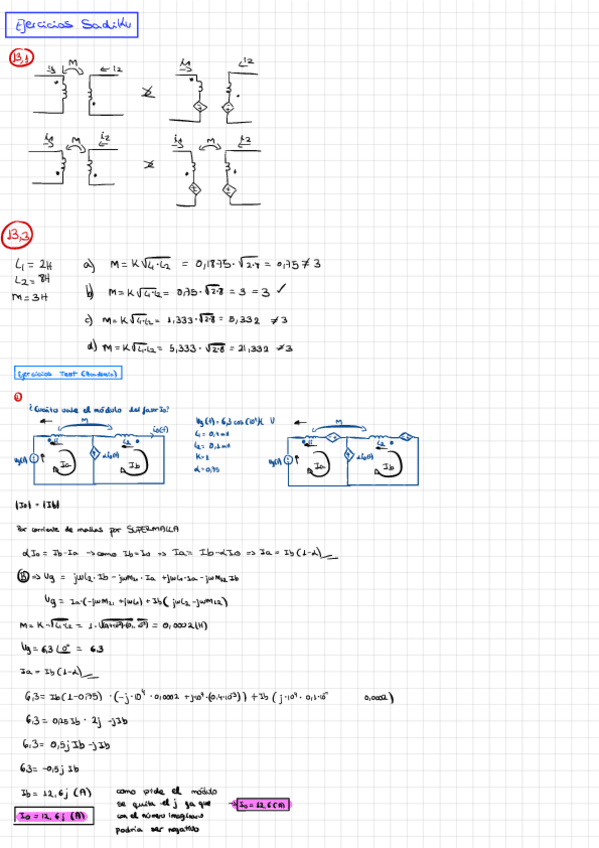 Ejercicios Sadiku
13,1
i1 M i2
i1 i2
i1 M i2
i1 M i2
13,3
L1 = 2H
L2 = 8H
M = 3H
a) M = K√L1·L2 = 0,1875·√2·8 = 0,75 ≠ 3
b) M = K√L1·L2 = 0,75·√2·8 = 3 = 3 ✓
c) M = K√L1·L2 = 1,333·√2·8 = 5,332 ≠ 3
d) M = K√L1·L2 = 5,333·√2·8 = 21,332 ≠ 3
Ejercicios Test
1
¿Cuánto vale el módulo del fasor Io?
M
L1 L2 io(t)
Vg(t) αio(t)
Ia Ib
Vg(t) = 6,3 cos(10⁴t) V
K = 1
α = 0,75
M
L2
Vg(t) αio(t)
Ia Ib
|Io| = |Ib|
Por corriente de mallas por SUPERMALLA
αIo = Ib - Ia → como Ib = Io ⇒ Ia = Ib - αIo ⇒ Ia = Ib(1-α)
⇒ Vg = jωL2·Ib - jωM21·Ia + jωL1·Ia - jωM12 Ib
Vg = Ia·(-jωM21 + jωL1) + Ib(jωL2 - jωM12)
M = K·√L1·L2 = 0,0002(H)
Vg = 6,3∠0° = 6,3
Ia = Ib(1-α)
6,3 = Ib(1-0,75)·(-j·10⁴·0,0002 + j·10⁴·(0,4·10⁻³)) + Ib(j·10⁴·0,1·10⁻ 0,0002)
6,3 = 0,25 Ib · 2j - jIb
6,3 = 0,5j Ib - jIb
6,3 = -0,5j Ib
Ib = 12,6j (A)
Io = 12,6j (A)
como pide el módulo
se quita el j ya que
con el número imaginario
podría ser negativo
→ Io = 12,6(A)